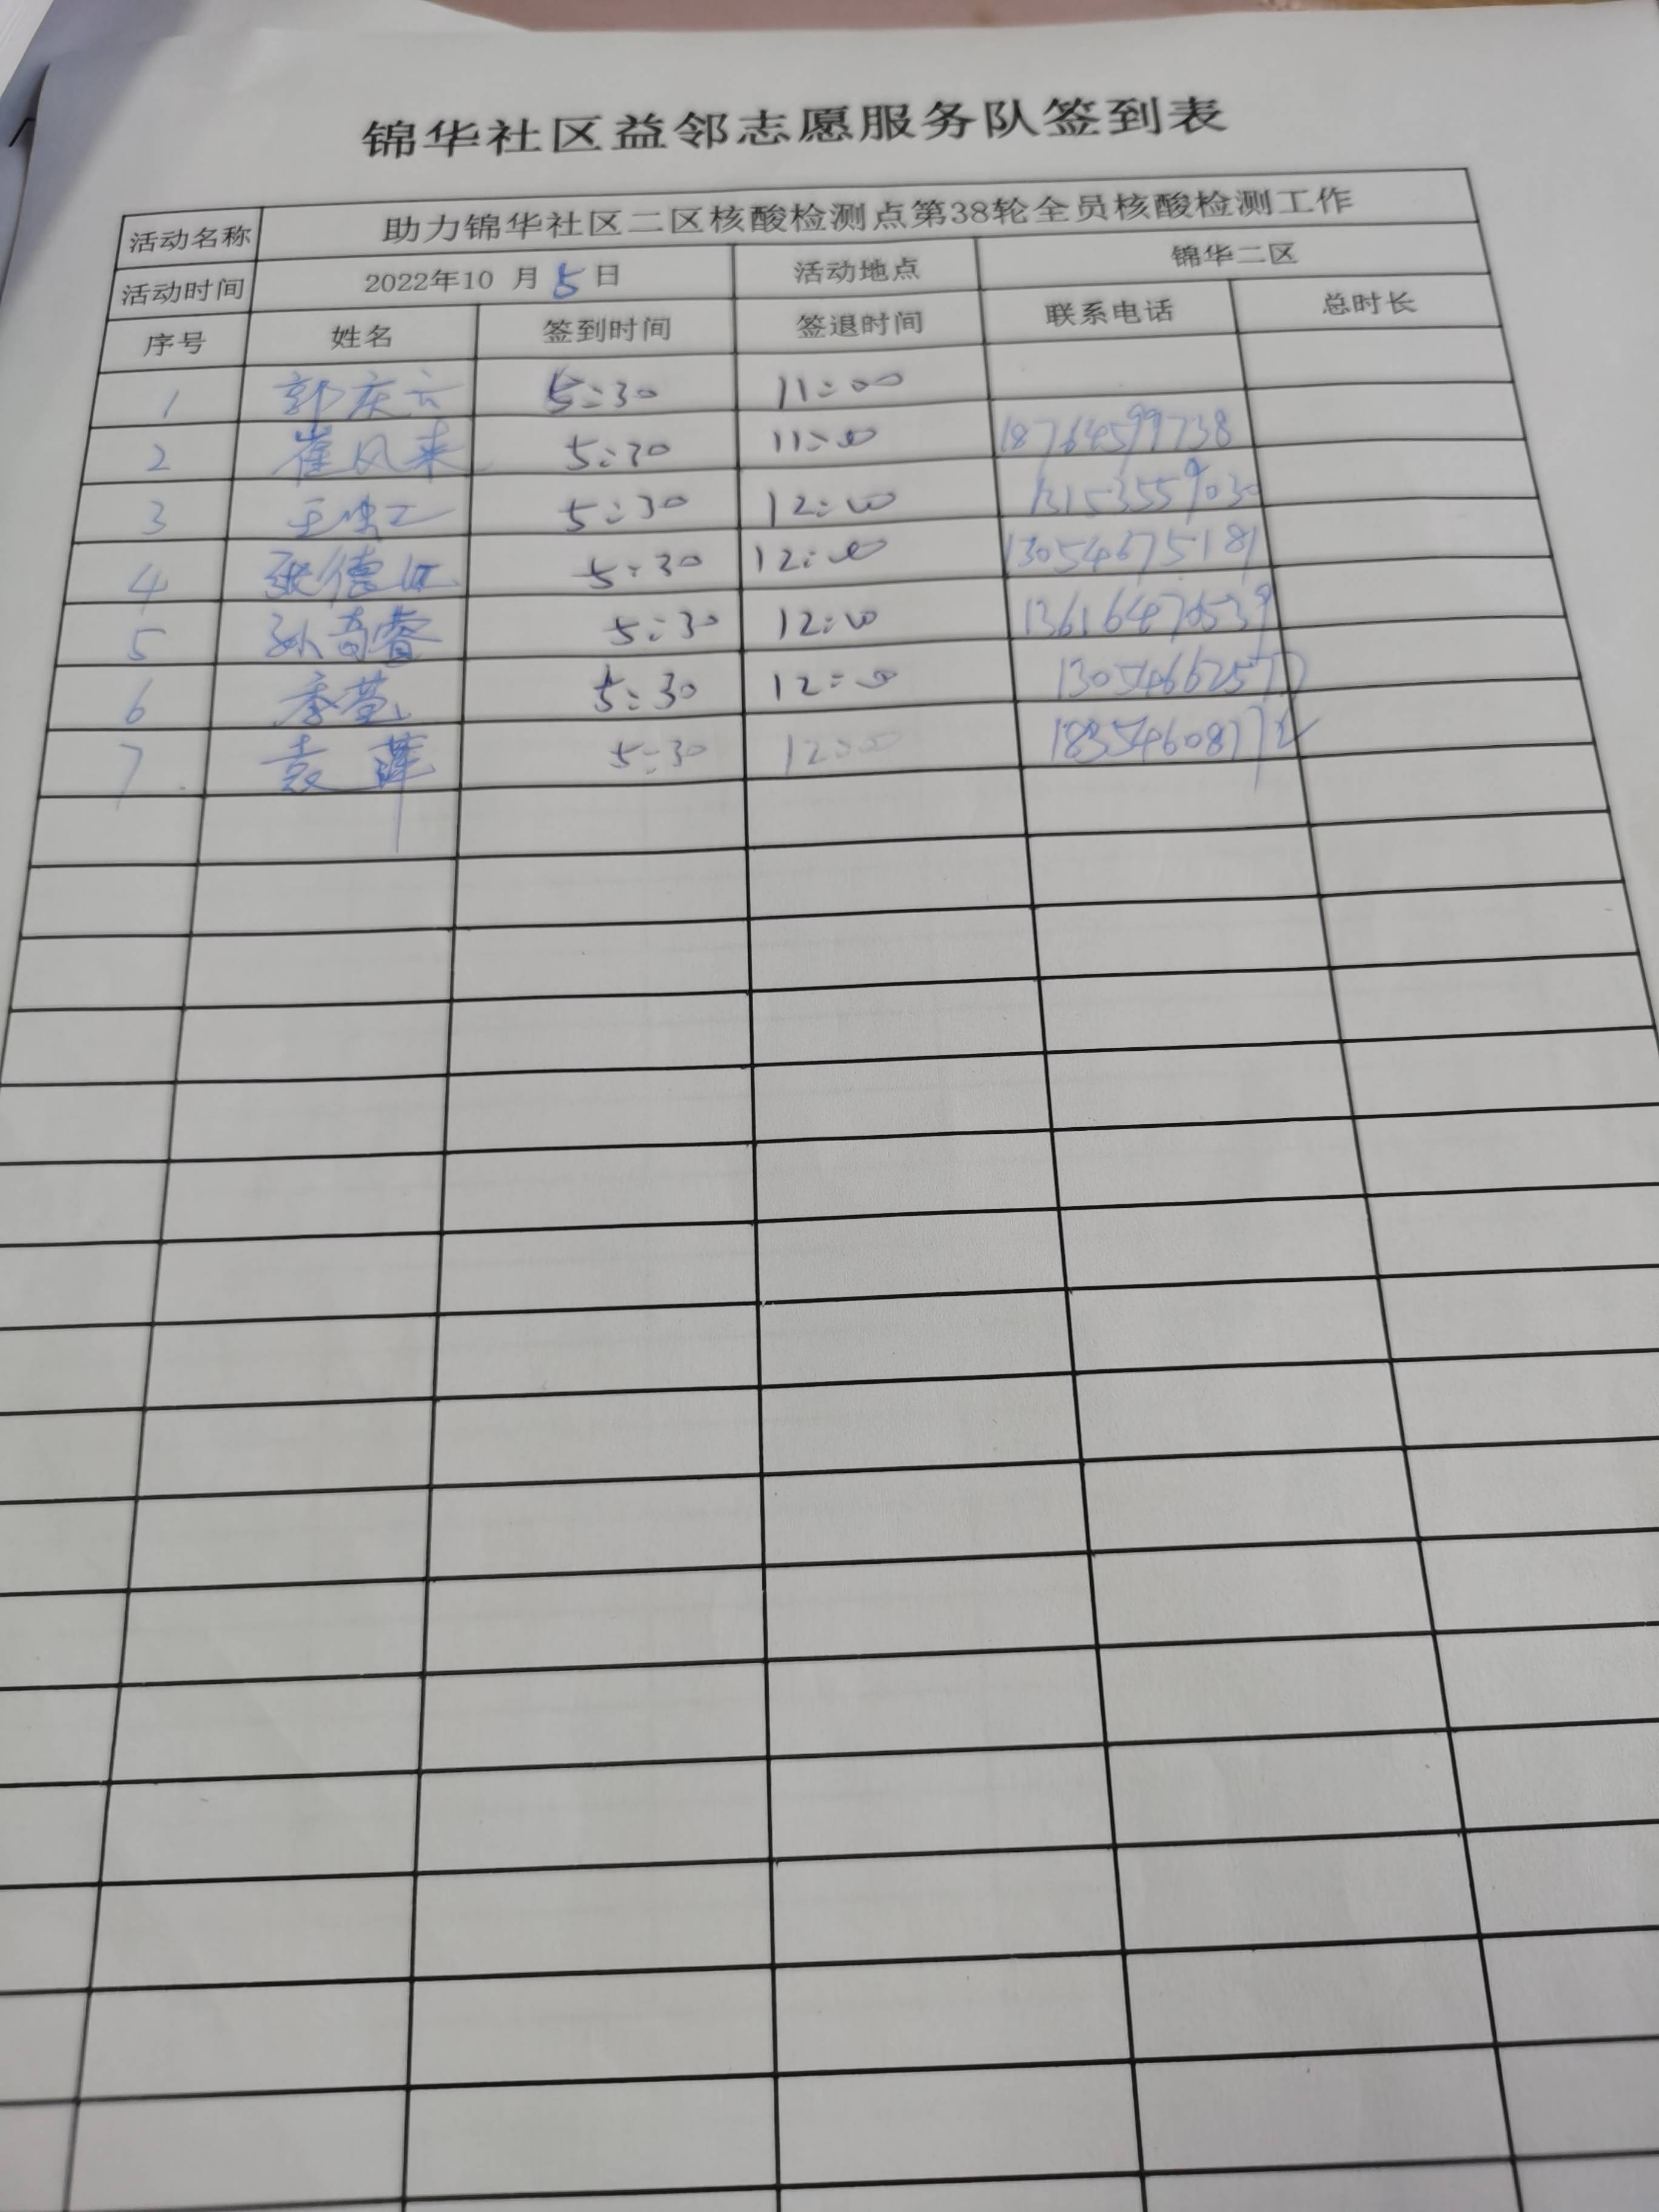 锦华社区益邻志愿服务队签到表
活动名称 助力锦华社区二区核酸检测点第38轮全员核酸检测工作
活动时间 2022年10 月 5 日 活动地点 锦华二区
序号 姓名 签到时间 签退时间 联系电话 总时长
1 郭庆云 5:30 11:00
2 崔风来 5:30 11:00 18764599738
3 5:30 12:00 13153559030
4 张德 5:30 12:00 13054675181
5 孙奇睿 5:30 12:00 13616470539
6 季莹 5:30 12:00
7 袁萍 5:30 12:00 18354608772